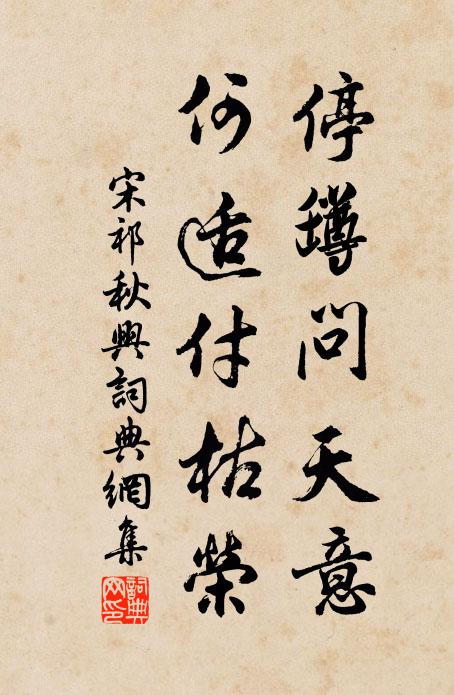 停罇問天意
何適付枯榮
宋祁秋興詞典網集
詞典網印